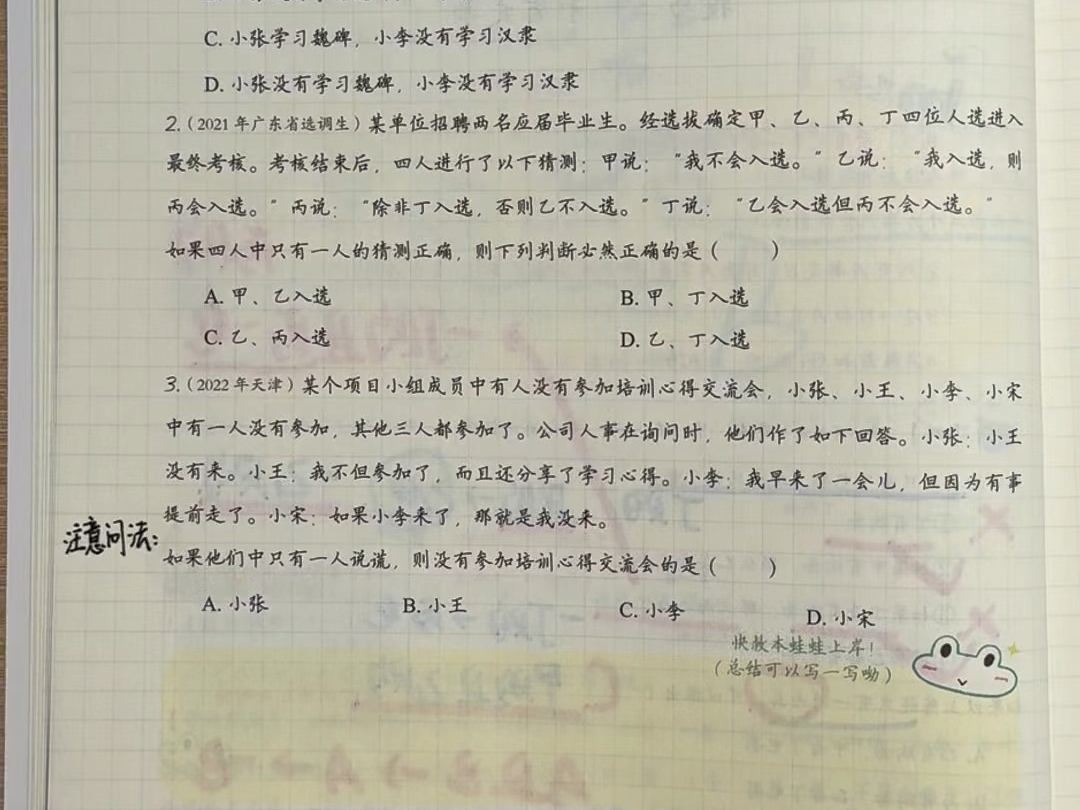 C. 小张学习魏碑，小李没有学习汉隶
D. 小张没有学习魏碑，小李没有学习汉隶
2.（2021年广东省选调生）某单位招聘两名应届毕业生。经选拔确定甲、乙、丙、丁四位人选进入
最终考核。考核结束后，四人进行了以下猜测：甲说：“我不会入选。”乙说：“我入选，则
丙会入选。”丙说：“除非丁入选，否则乙不入选。”丁说：“乙会入选但丙不会入选。”
如果四人中只有一人的猜测正确，则下列判断必然正确的是（　　）
A. 甲、乙入选　B. 甲、丁入选
C. 乙、丙入选　D. 乙、丁入选
3.（2022年天津）某个项目小组成员中有人没有参加培训心得交流会，小张、小王、小李、小宋
中有一人没有参加，其他三人都参加了。公司人事在询问时，他们作了如下回答。小张：小王
没有来。小王：我不但参加了，而且还分享了学习心得。小李：我早来了一会儿，但因为有事
提前走了。小宋：如果小李来了，那就是我没来。
注意问法：
如果他们中只有一人说谎，则没有参加培训心得交流会的是（　　）
A. 小张　B. 小王　C. 小李　D. 小宋
快救本蛙蛙上岸！
（总结可以写一写呦）